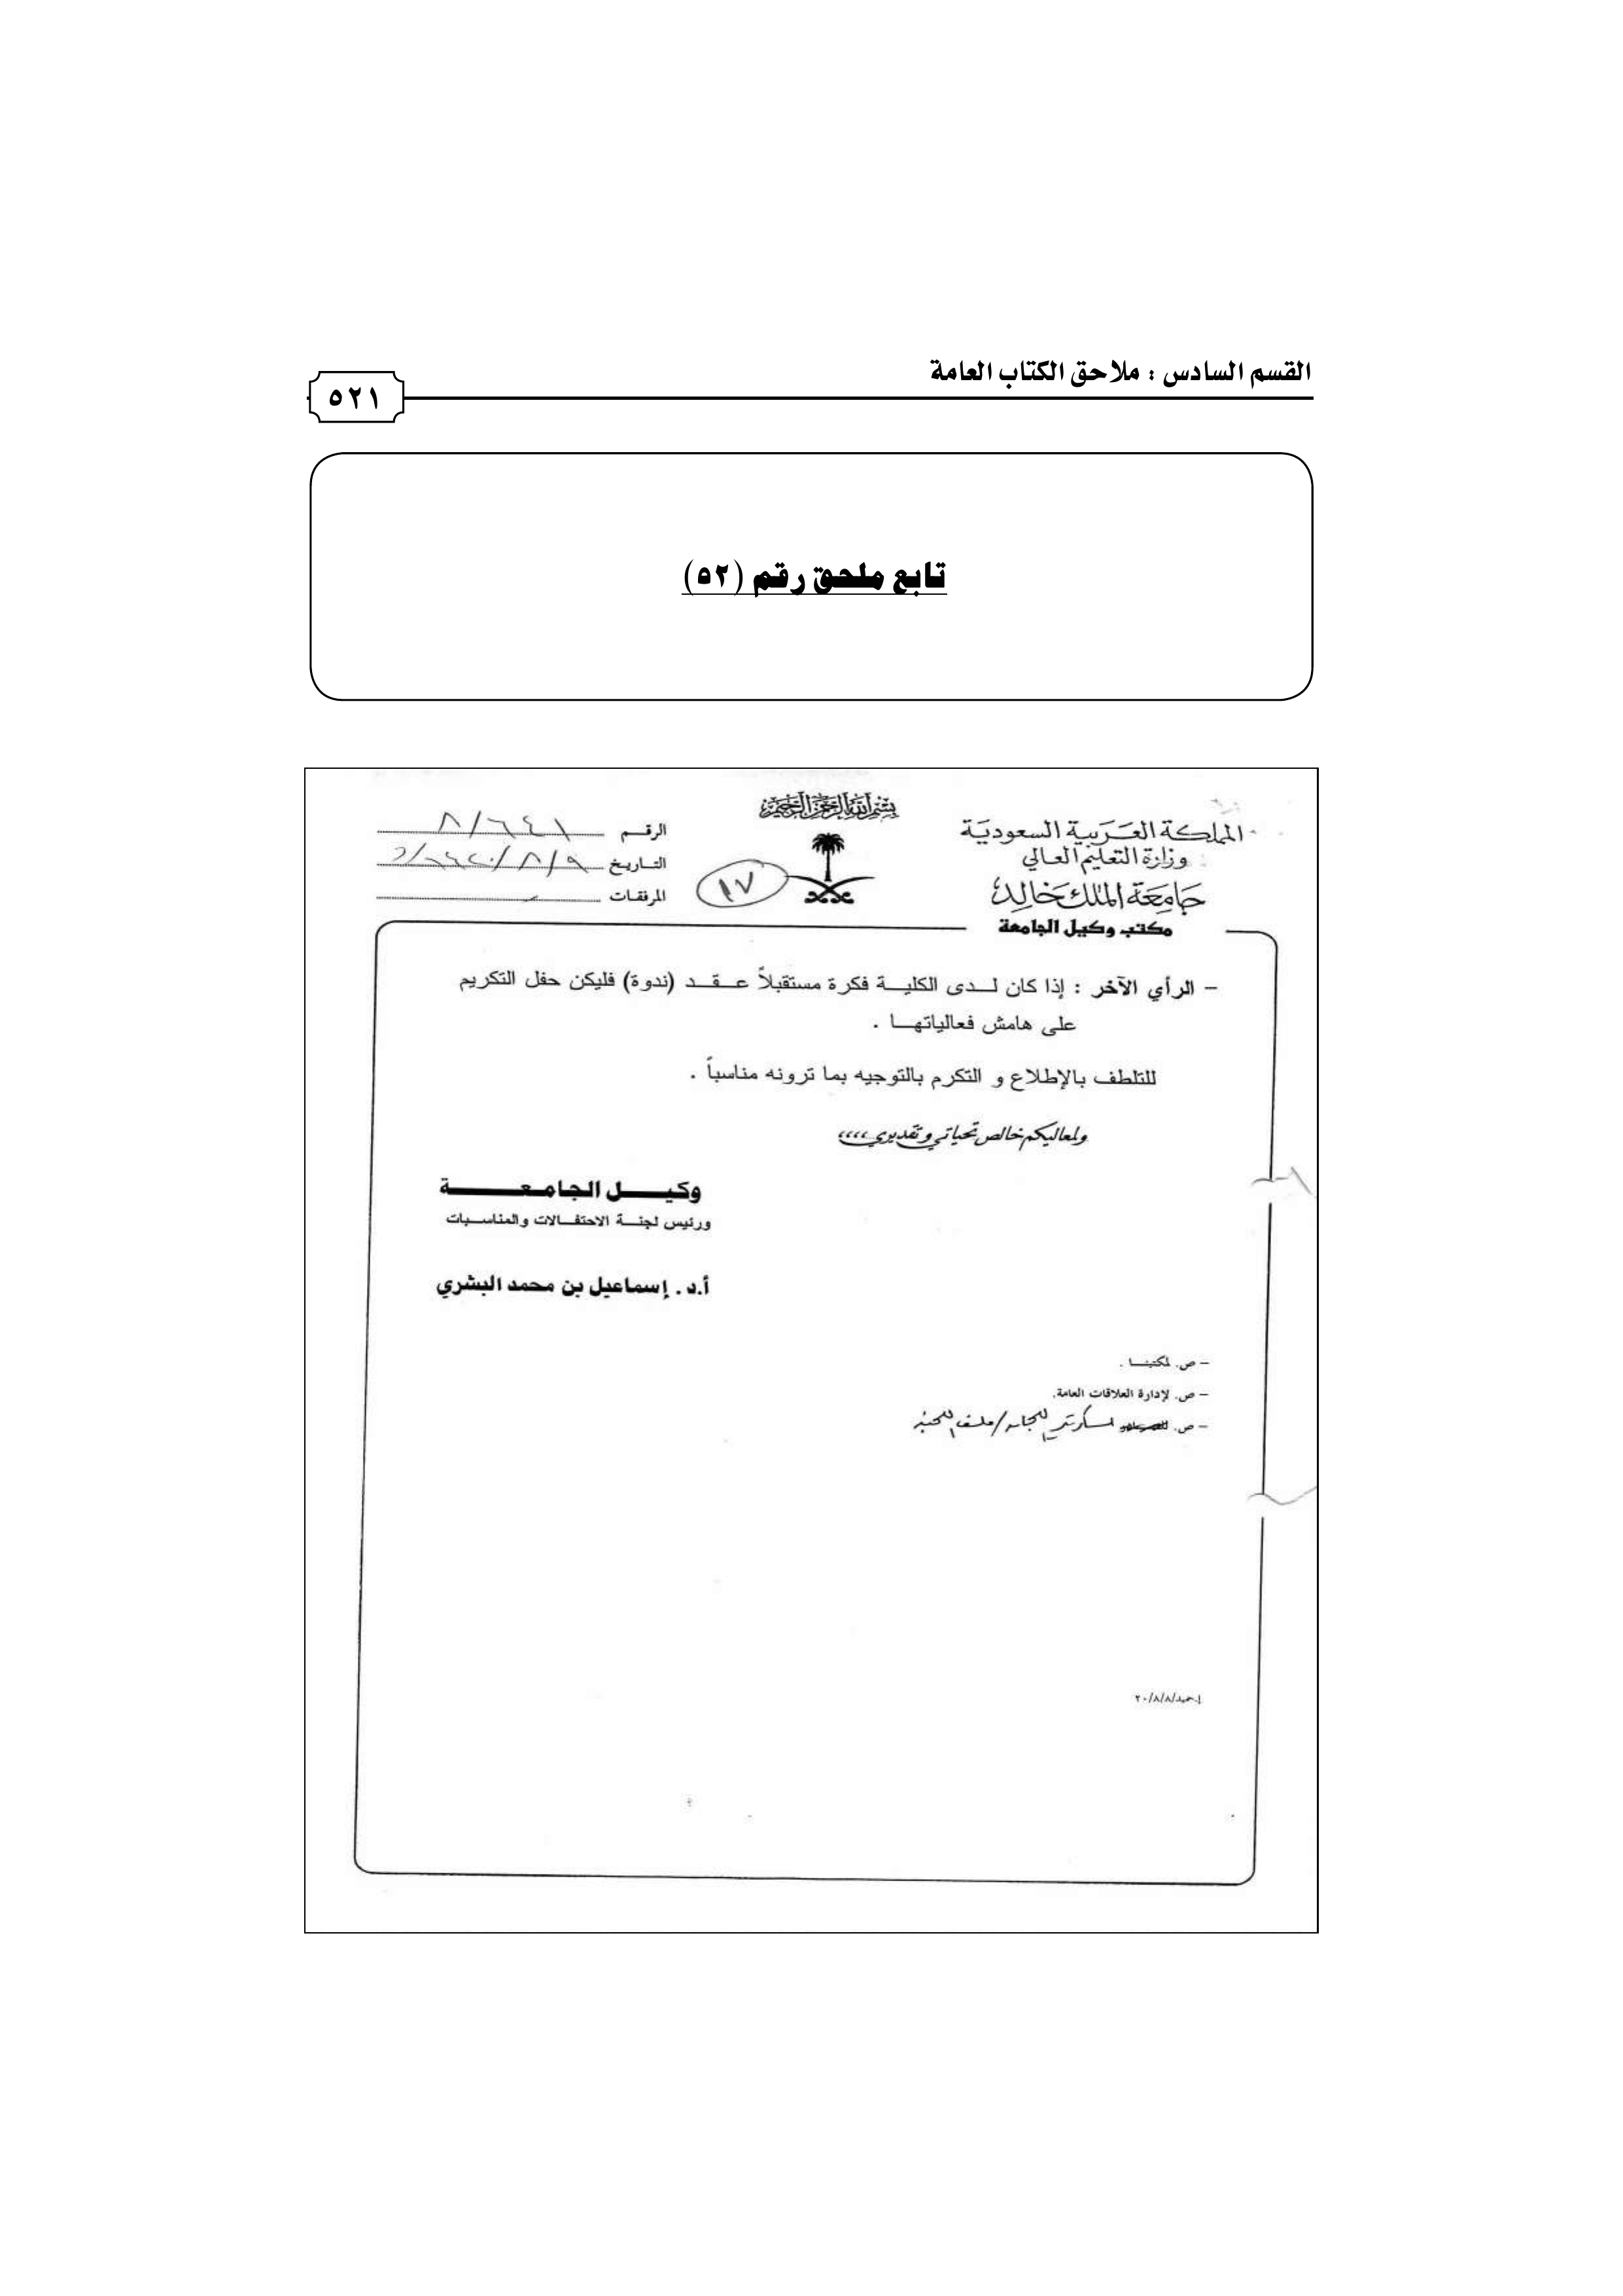 القسم السادس : ملاحق الكتاب العامة
٥٢١
تابع ملحق رقم (٥٢)
المملكة العربية السعودية
وزارة التعليم العالي
جامعة الملك خالد
مكتب وكيل الجامعة
بسم الله الرحمن الرحيم
١٧
الرقم ٨/٦٤١
التاريخ ٩/٨/١٤٢٠
المرفقات
– الرأي الآخر : إذا كان لدى الكلية فكرة مستقبلاً عقد (ندوة) فليكن حفل التكريم
على هامش فعالياتها .
للتلطف بالإطلاع و التكرم بالتوجيه بما ترونه مناسباً .
ولمعاليكم خالص تحياتي وتقديري ،،،،
وكيل الجامعة
ورئيس لجنة الاحتفالات والمناسبات
أ.د . إسماعيل بن محمد البشري
– ص. لمكتبنا .
– ص. لإدارة العلاقات العامة.
– ص. / ملف اللجنة
٢٠/٨/٨/